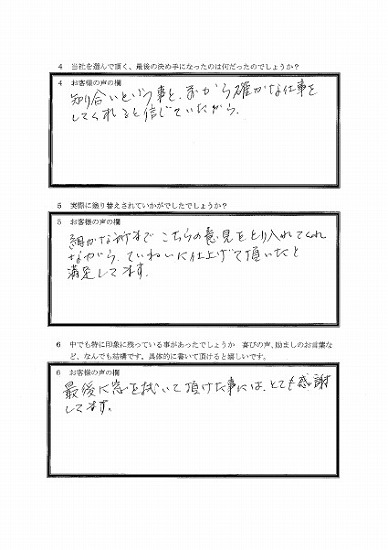 4 当社を選んで頂く、最後の決め手になったのは何だったのでしょうか?
4 お客様の声の欄
知り合いという事と、まから確かな仕事を
してくれると信じていたから、
5 実際に塗り替えされていかがでしたでしょうか?
5 お客様の声の欄
細かな所まで こちらの意見を とり入れてくれ
ながら、ていねいに仕上げて頂いたと
満足してます。
6 中でも特に印象に残っている事があったでしょうか 喜びの声、励ましのお言葉な
ど、なんでも結構です。具体的に書いて頂けると嬉しいです。
6 お客様の声の欄
最後に窓を拭いて頂けた事には、とても感謝
してます。